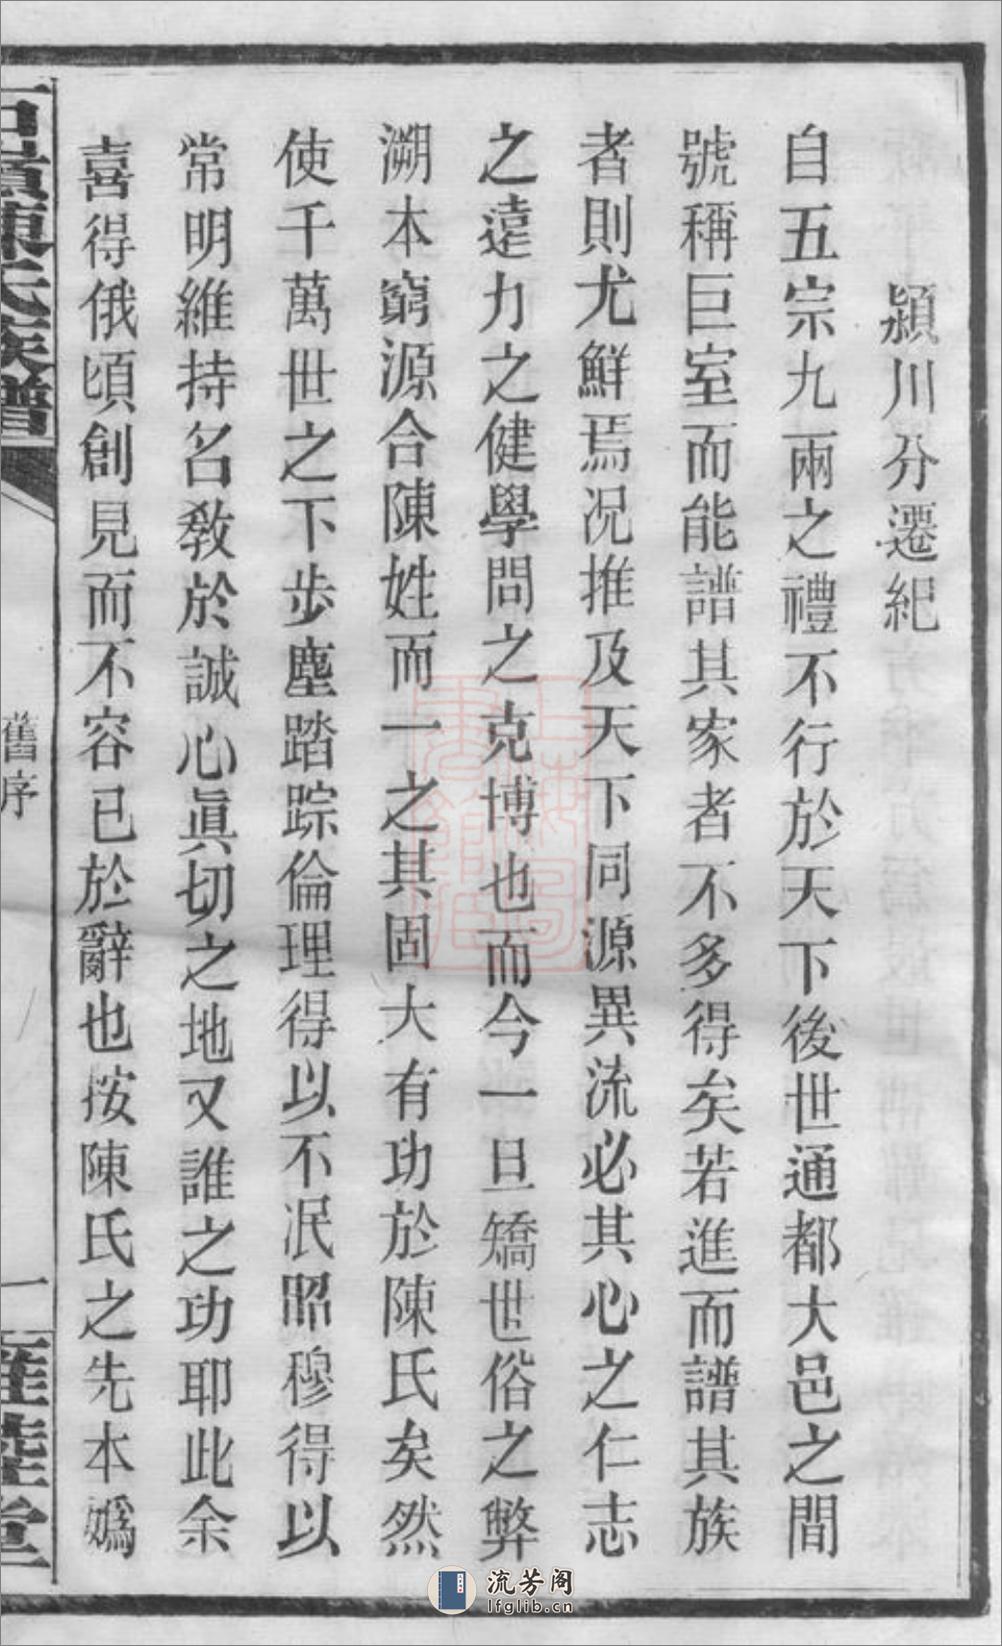 潁川分遷紀
自五宗九兩之禮不行於天下後世通都大邑之間
號稱巨室而能譜其家者不多得矣若進而譜其族
者則尤鮮焉况推及天下同源異流必其心之仁志
之遠力之健學問之克博也而今一旦矯世俗之弊
溯本窮源合陳姓而一之其固大有功於陳氏矣然
使千萬世之下步塵踏踪倫理得以不泯昭穆得以
常明維持名敎於誠心眞切之地又誰之功耶此余
喜得俄頃創見而不容已於辭也按陳氏之先本嬀
陳氏族譜
舊序
一
堂
流芳阁
lfglib.cn